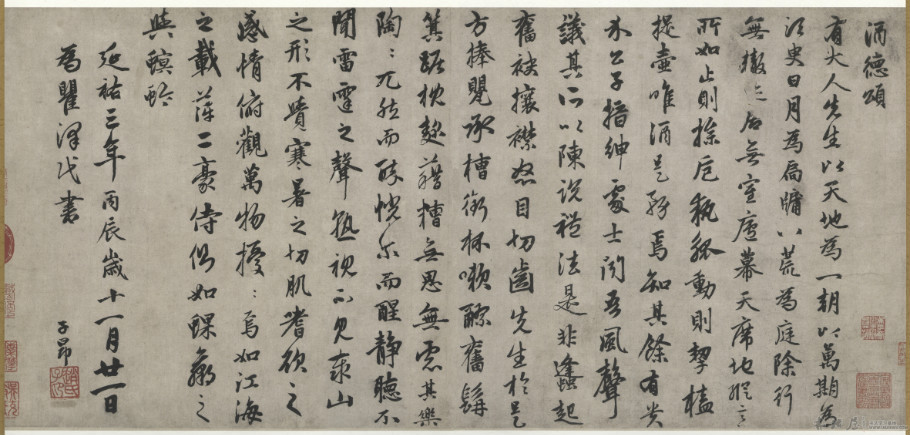 酒德頌
有大人先生以天地為一朝以萬期為
須臾日月為扃牖八荒為庭除行
無轍迹居無室廬幕天席地縱意
所如止則操卮執觚動則挈榼
提壺唯酒是務焉知其餘有貴
介公子搢紳處士聞吾風聲
議其所以陳說禮法是非蠭起
奮袂攘襟怒目切齒先生於是
方捧甖承槽銜杯嗽醪奮髯
箕踞枕麴藉糟無思無慮其樂
陶〻兀然而醉恍尔而醒靜聽不
聞雷霆之聲熟視不見泰山
之形不覺寒暑之切肌嗜欲之
感情俯觀萬物擾〻焉如江海
之載萍二豪侍側如蜾蠃之
與螟蛉
延祐三年丙辰歲十一月廿一日
為瞿澤書
子昂